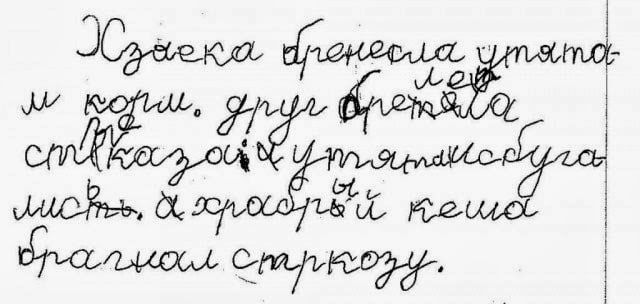 Хзаека бренесла утята-
м корм. друг бретела
стрказа. а утятаисбуга
лись. а храбрый кеша
брагнал старкозу.